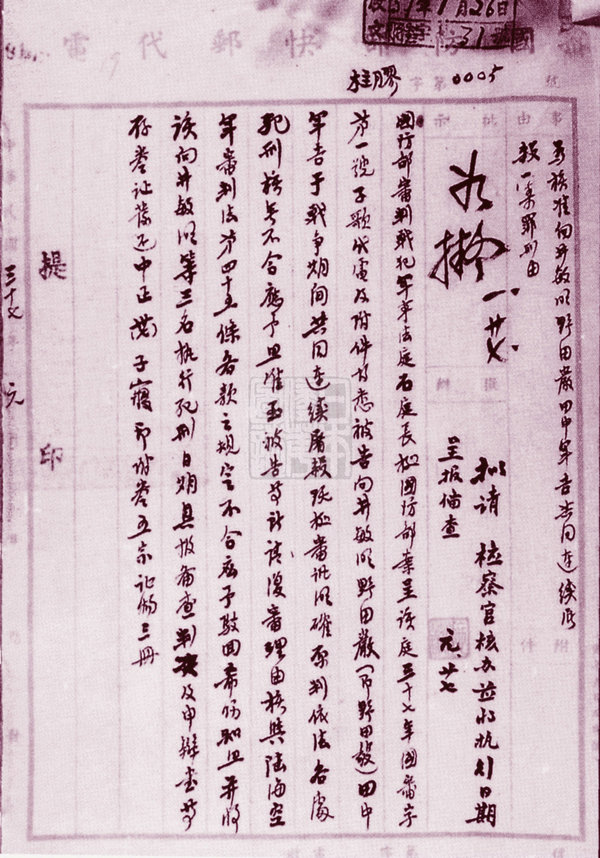 國防部快郵代電
年1月26日
字第0005號
事由
為核准向井敏明野田巖田中軍吉共同連續屠
殺一案罪刑由
批示
如擬 一廿七
擬辦
拟请 檢察官核办並将执行日期
呈报備查 元廿七
附件
國防部審判戰犯軍事法庭石庭長據國防部案呈該庭三十七年國審字
第一號子歌代電及附件均悉被告向井敏明野田巖(即野田毅)田中
軍吉于戰争期间共同連續屠殺既經審訊明確原判依法各處
死刑核无不合應予照准至被告等計请復審理由核與陸海空
軍審判法第四十五條各款之規定不合應予駁回希飭知照并將
該向井敏明等三名执行死刑日期具报备查判決及申辯書等
存卷证據发还中正子寢印附卷五宗证物三冊
提印
三十七年元